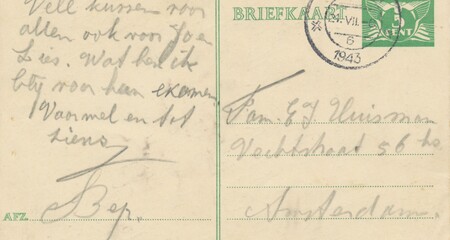 Veel kussen voor
allen ook voor Joen
Lies. Wat ben ik
bly voor hun examen
Vaarwel en tot
ziens
Bep.
AFZ.
BRIEFKAART
VII
6
1943
5
CENT
Fam. E J Huisman
Vechtstraat 56 hs
Amsterdam.